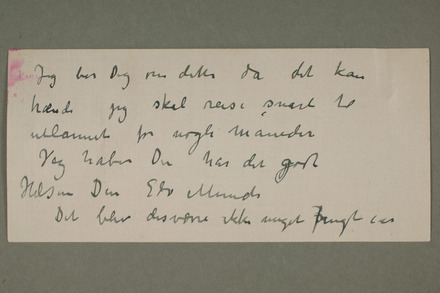 Jeg ber Dig om dette da det kan
hænde jeg skal reise snart til
utlannet for nogle måneder
Jeg håber Du har det godt
Hilsen Din Edv Munch
Det blev desværre ikke noget